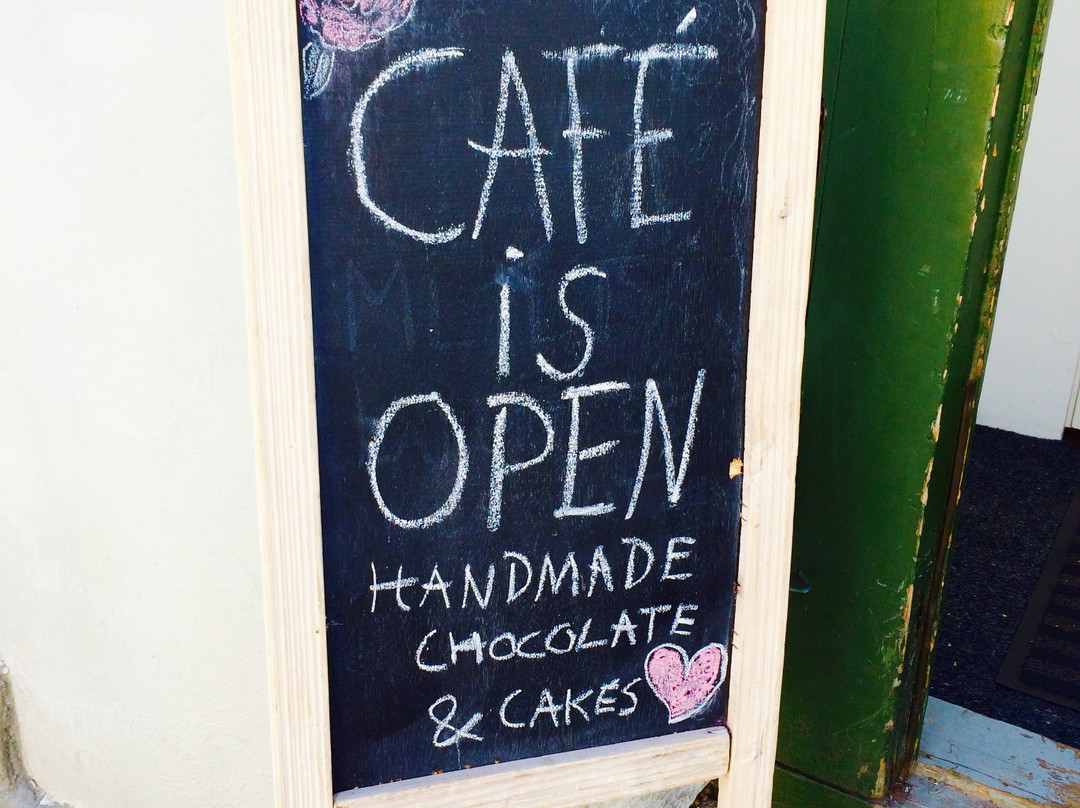 CAFÉ
iS
OPEN
HANDMADE
CHOCOLATE
& CAKES